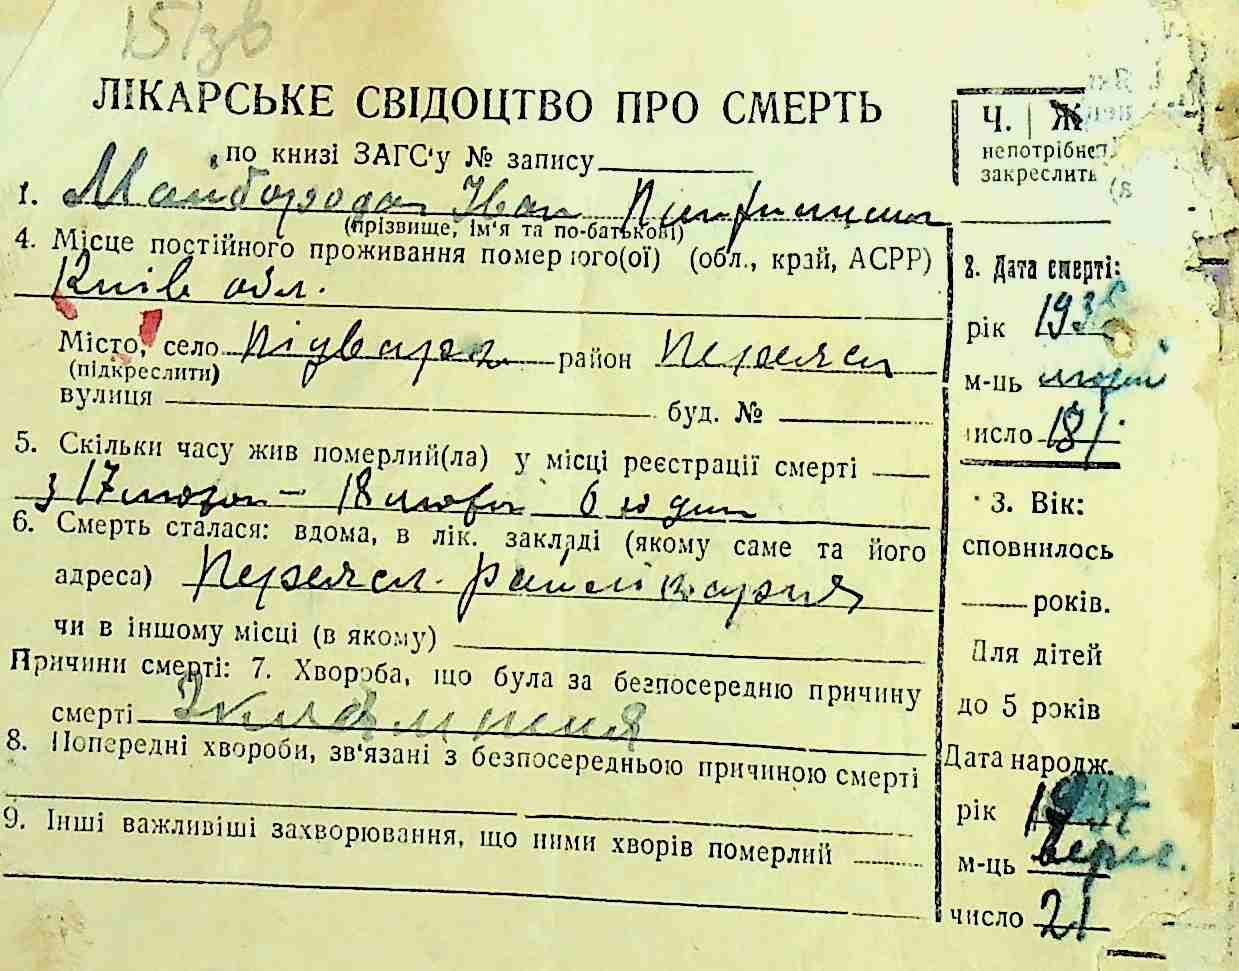 151зв
ЛІКАРСЬКЕ СВІДОЦТВО ПРО СМЕРТЬ
по книзі ЗАГС'у № запису
1. Майборода Іван
(прізвище, ім'я та по-батькові)
4. Місце постійного проживання померлого(ої) (обл., край, АСРР)
Київ обл.
Місто, село Підварк район Переясл
(підкреслити)
вулиця буд. №
5. Скільки часу жив померлий(ла) у місці реєстрації смерті
з 17 лютого – 18 лютого 6 годин
6. Смерть сталася: вдома, в лік. закладі (якому саме та його
адреса) Переясл. райлікарня
чи в іншому місці (в якому)
Причини смерті: 7. Хвороба, що була за безпосередню причину
смерті
8. Попередні хвороби, зв'язані з безпосередньою причиною смерті
9. Інші важливіші захворювання, що ними хворів померлий
Ч. | Ж
непотрібне
закреслить
2. Дата смерті:
рік
м-ць лютий
число 18
3. Вік:
сповнилось
років.
Для дітей
до 5 років
Дата народж.
рік 1937
м-ць верес.
число 21